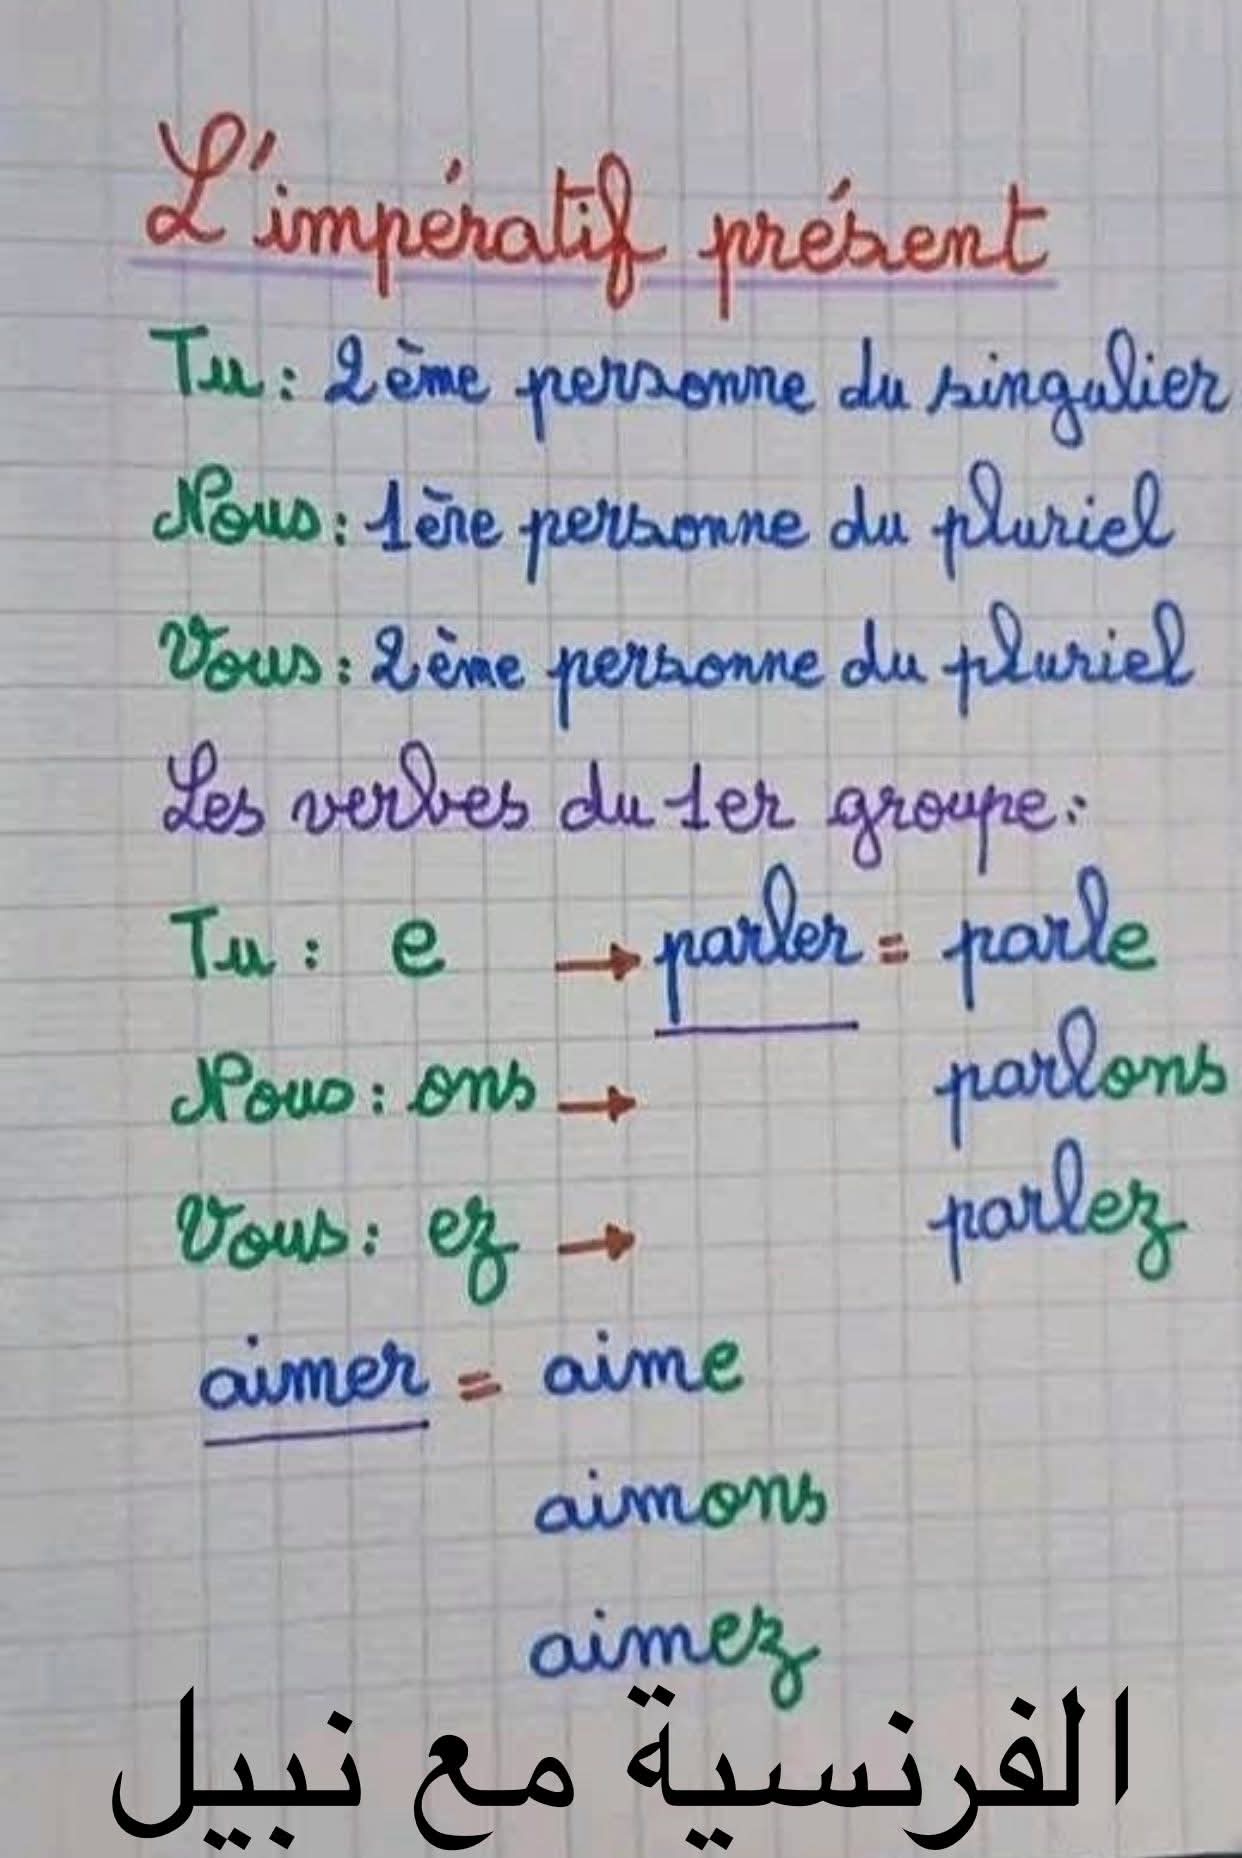 L'impératif présent
Tu : 2ème personne du singulier
Nous : 1ère personne du pluriel
Vous : 2ème personne du pluriel
Les verbes du 1er groupe :
Tu : e → parler = parle
Nous : ons → parlons
Vous : ez → parlez
aimer = aime
aimons
aimez
الفرنسية مع نبيل